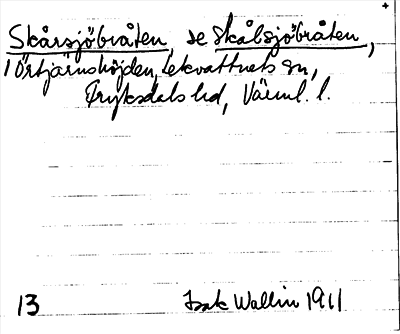 Skårsjöbråten, se Skålsjöbråten,
i Örtjärnshöjden, Lekvattnets sn,
Fryksdals hd, Värml. l.
13 Isak Wallin 1911